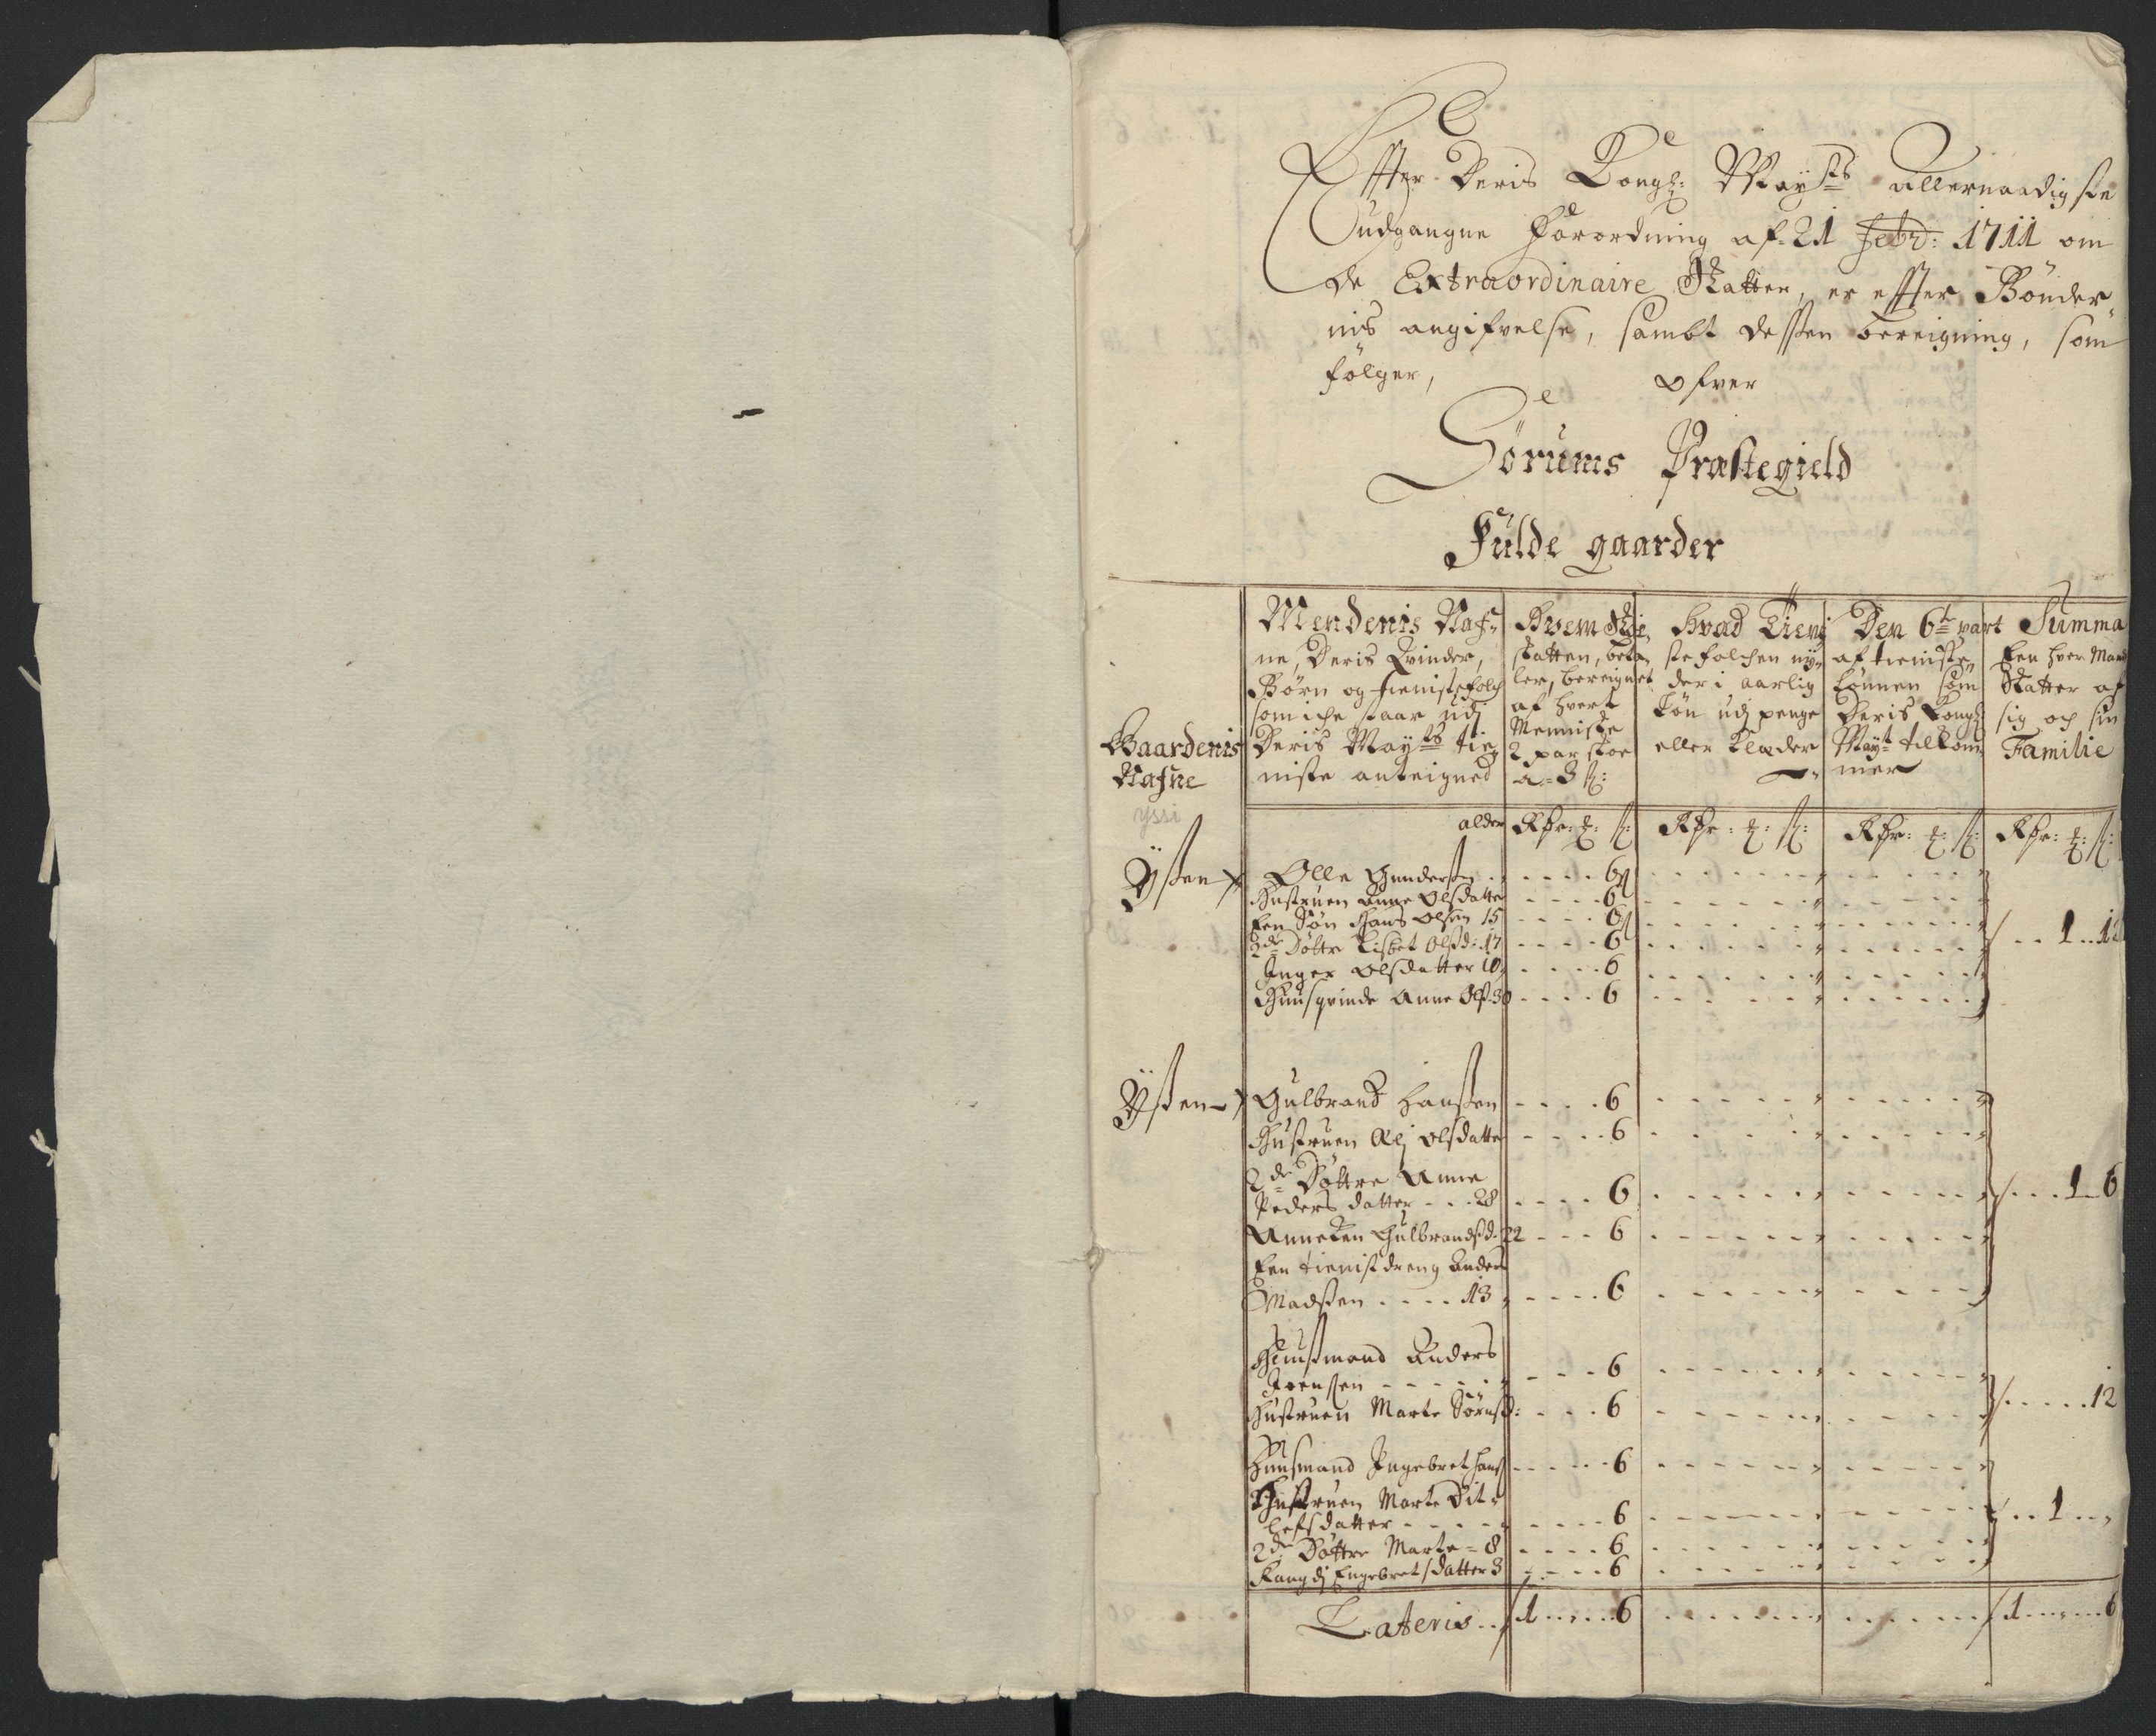 Effter Deris Kongl: Mayts allernaadigste
udgangne Forordning af 21 Febr: 1711 om
de Extraordinaire Skatter, er effter Bønder
nis angifvelse, sambt dessen beregning, som
følger,
ofver
Sørums Præstegield
Fulde gaarder
Gaardenis
Nafne
Mendenis Naf-
ne, Deris Qvinder,
Børn og tienistefolch
som iche staar udj
Deris Mayts tie-
niste anteigned
Hvem Skoe
skatten, beta-
ler, beregnet
af hvert
Menniske
2 par skoe
a 3 s:
Hvad Tieni
stefolchen ny-
der i aarlig
Løn udj penge
eller Klæder
Den 6te part
af tieniste
Lønnen som
Deris Kongl
Mayt tilkom-
mer
Summa
Een hver Mand
Skatter af
sig och sin
Familie
yssi
alder Rdr: : s: Rdr: : s: Rdr: : s: Rdr: : s:
Ÿsten Olle Gundersen 6
Hustruen Anne Olsdatter 6
Een Søn Hans Olsen 15 6
2de Døttr Lisbet Olsd: 17 6 1 12
Inger Olsdatter 10 6
Huusqvinde Anne Ols 30 6
Ÿsten Gulbrand Hansen 6
Hustruen Olsdatter 6
2de Døttre Anne
Peders datter 28 6 1 6
Anneken Gulbrandsd: 22 6
Een tienistdreng Anders
Madsen 13 6
Huusmand Anders
Joensen 6
Hustruen Marte Sørnsd: 6 12
Huusmand Ingebret Hans 6
Hustruen Marte Dit-
lefsdatter 6 1
2de Døttre Marte 8 6
Rangdj Engebretsdatter 3 6
Lateris 1 6 1 6